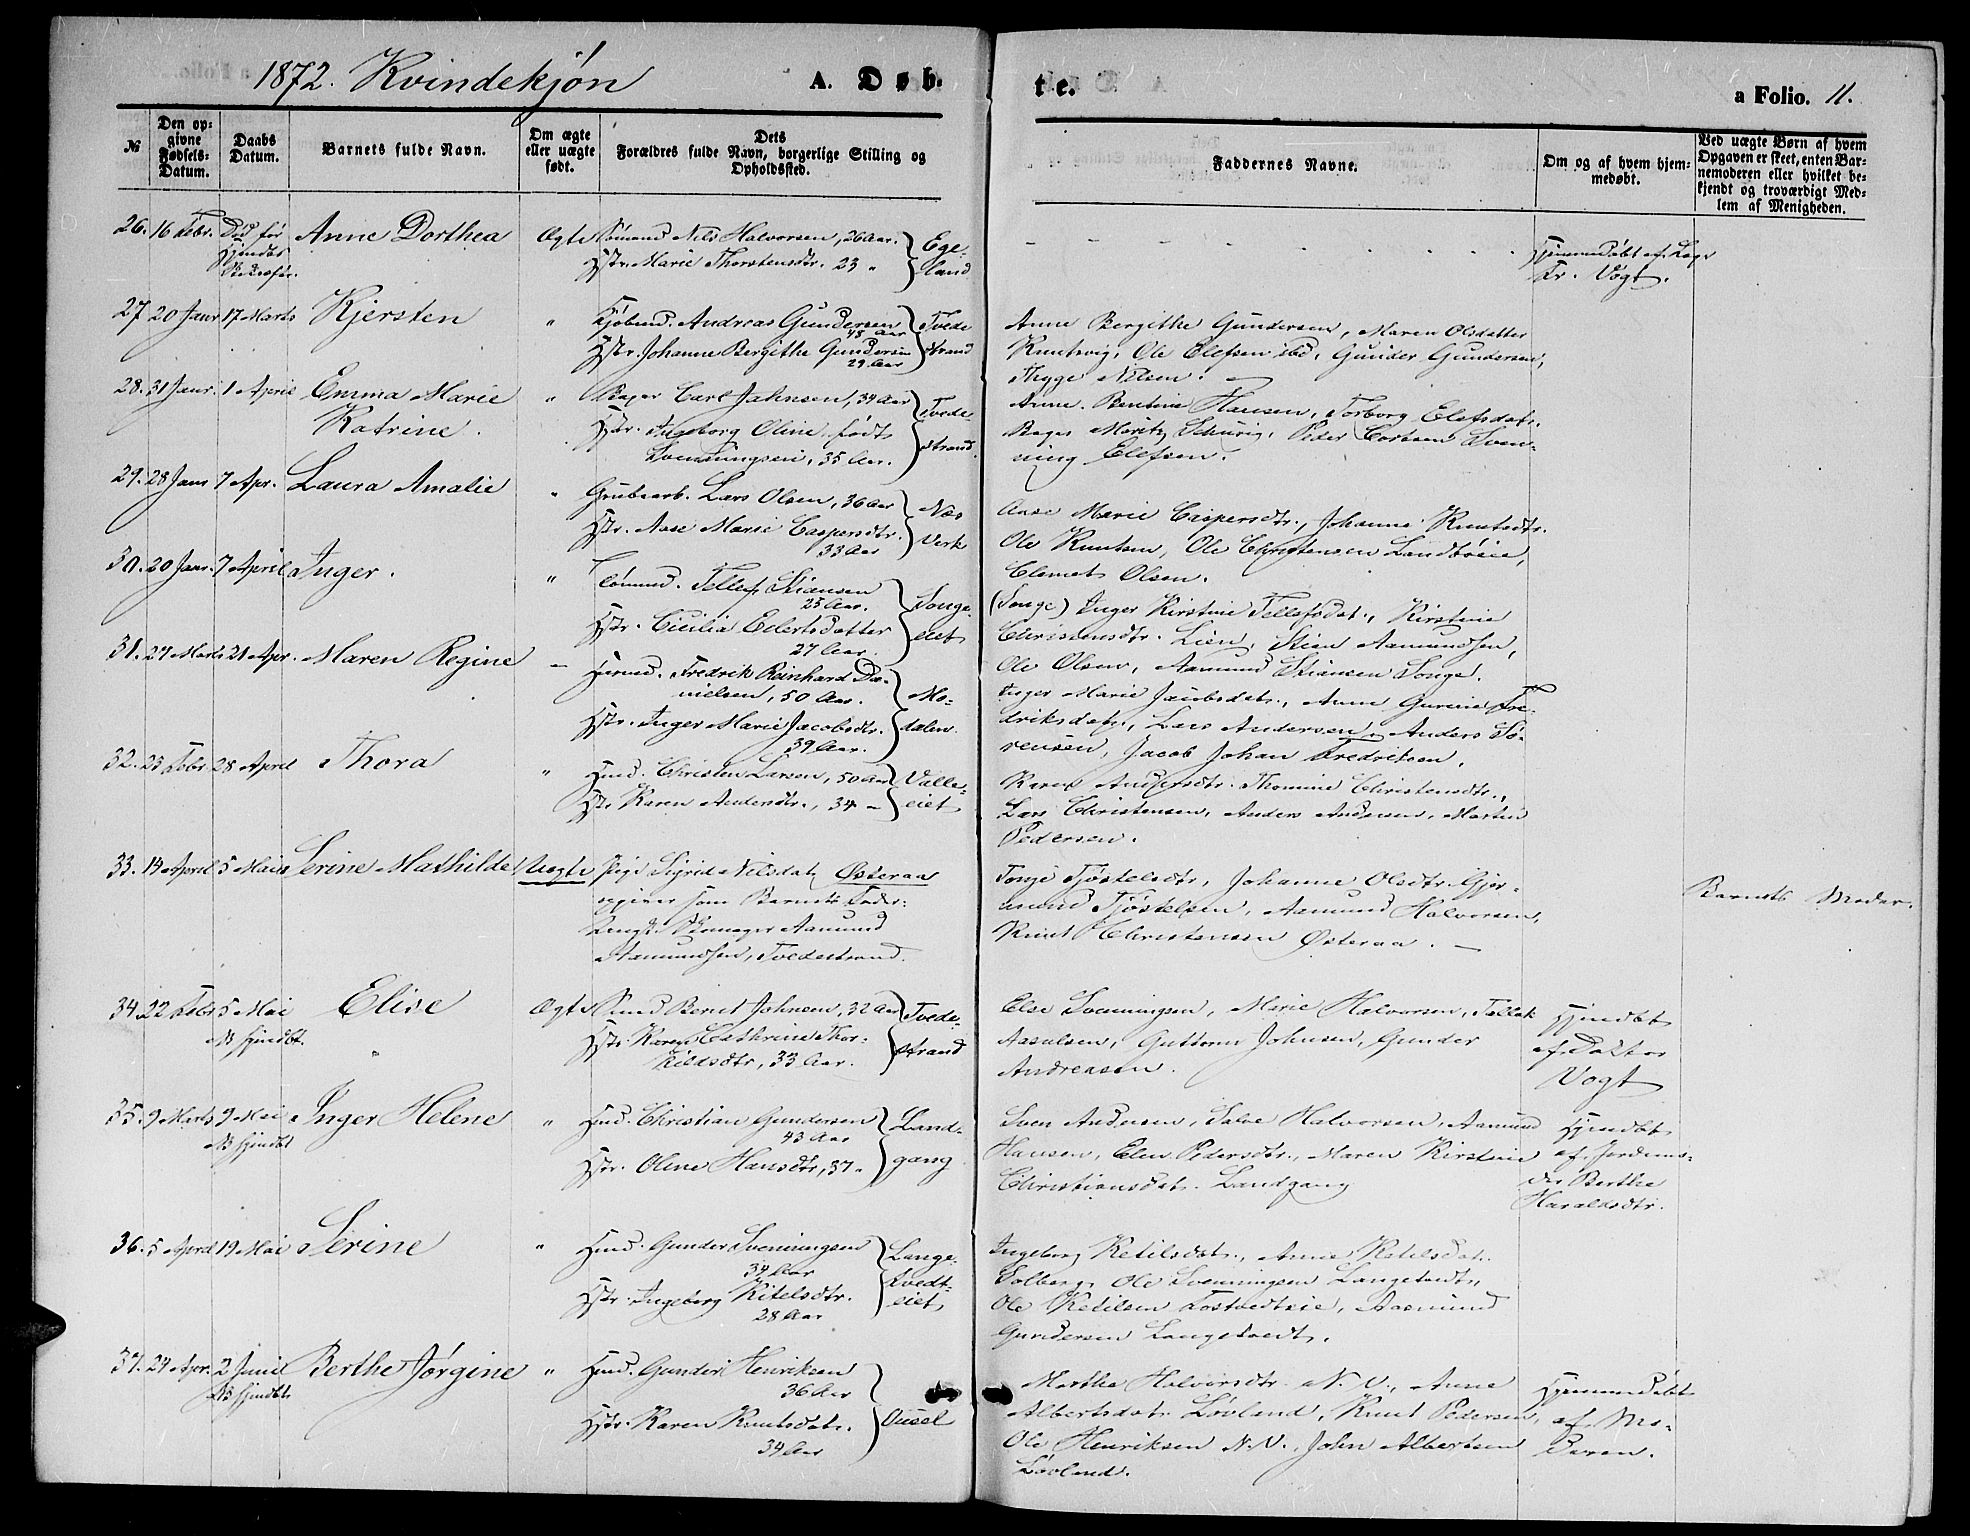 1872. Kvindekjøn
A. Døb-
te.
a Folio. 11.
№
Den op-
givne
Fødsels-
Datum.
Daabs
Datum.
Barnets fulde Navn.
Om ægte
eller uægte
født.
Dets
Forældres fulde Navn, borgerlige Stilling og
Opholdssted.
Faddernes Navne.
Om og af hvem hjem-
medøbt.
Ved uægte Børn af hvem
Opgaven er skeet, enten Bar-
nemoderen eller hvilket be-
kjendt og troværdigt Med-
lem af Menigheden.
26. 16 Febr. Død før Anne Dorthea Ægte Sømand Nils Halvorsen, 26 Aar.
Hstr. Marie Thorstensdtr. 23 "
Ege-
land
Hjemmedøbt af
Dr. Vogt.
27 20 Janr 17 Marts Kjersten " Kjøbmd. Andreas Gundersen
48 Aar
Hstr. Johanne Bergithe Gundersen
29 Aar
Tvede
strand
Anne Bergithe Gundersen, Maren Olsdatter
Ole Elefsen ibd, Gunder Gundersen,
Thyge Nilsen.
28. 31 Janr. 1 April Emma Marie
Katrine.
" Bager Carl Jahnsen, 34 Aar
Hstr. Ingeborg Oline født
Svenningsen, 35 Aar.
Tvede-
strand
Anne Bentine Hansen, Torborg Elefsdatr.
Bager Moritz Schurig, Peder Sven-
ning Elefsen.
29. 28 Janr 7 Apr. Laura Amalie
" Grubearb. Lars Olsen, 36 Aar
Hstr. Aase Marie Caspersdtr.
33 Aar
Næs
Verk
Aase Marie Caspersdtr., Johanne Knutsdtr.
Ole Knutsen, Ole Christensen Landbøeie,
Clemet Olsen.
30. 20 Janr. 7 April Inger.
" Sømnd. Tellef Stiansen
25 Aar.
Hstr. Cicilia Eilertsdatter
27 Aar.
Songe
eiet
(Songe) Inger Kirstine Tellefsdat., Kirstine
Christensdtr. Lien, Stian Aamundsen,
Ole Olsen, Aamund Stiansen Songe.
31. 27 Marts 21 Apr. Maren Regine
Fredrik Reinhard Da-
nielsen, 50 Aar.
Hstr. Inger Marie Jacobsdtr.
39 Aar.
Mo-
dalen.
Inger Marie Jacobsdatr., Anne Gurine Fre-
driksdatr., Lars Andersen, Anders Sø-
rensen, Jacob Johan Fredriksen.
32. 23 Febr. 28 April Thora
" Hmd. Christen Larsen, 50 Aar
Hstr Karen Andersdtr., 34 -
Valle-
eiet
Karen Andersdtr. Thomine Christensdtr.,
Lars Christensen, Anders Andersen, Martin
Pedersen.
33. 14 April 5 Mai Serine Mathilde Uægte Pige Sigrid Nilsdat. Østeraa
opgiver som Barnets Fader:
Skomager Aamund
Aamundsen, Tvedestrand.
Tonje Tjøstelsdtr, Johanne Olsdtr. Gjer-
mund Tjøstelsen, Aamund Halvorsen,
Knut Christensen Østeraa.
Barnets Moder.
34. 22 Febr 5 Mai
NB hjmdbt.
Elise
Ægte Smed Bernt Johnsen, 32 Aar
Hstr. Karen Cathrine Thor-
kildsdtr, 33 Aar.
Tvede-
strand
Else Svenningsen, Marie Halvorsen, Tellek
Aasulsen, Guttorm Johnsen, Gunder
Andreasen.
Hjmdbt
af Doktor
Vogt
35. 9 Marts 9 Mai
NB hjmdbt
Inger Helene
" Hmd. Christian Gundersen
43 Aar
Hstr. Oline Hansdtr, 37 "
Land-
gang
Sven Andersen, Salve Halvorsen, Aamund
Hansen, Elen Pedersdtr., Maren Kirstine
Christiansdat. Landgang
Hjmdbt
af Jordemo-
der Berthe
Haraldsdtr.
36. 5 April 19 Mai Serine
" Hmd. Gunder Svenningsen
34 Aar
Hstr. Ingeborg Kitelsdtr.
28 Aar
Lange-
tvedt-
eiet
Ingeborg Ketilsdat., Anne Ketilsdat.
Solberg, Ole Svenningsen Langetvedt,
Ole Ketilsen Tostvedteie, Aasmund
Gundersen Langetvedt.
37. 24 Apr. 2 Juni
NB hjmdbt
Berthe Jørgine
" Hmd. Gunder Henriksen
36 Aar
Hstr. Karen Knutsdat.
34 Aar
Dusel
Marthe Halvorsdtr. N. V., Anne
Albertsdat. Løvland, Knut Pedersen,
Ole Henriksen N. V., John Albertsen
Løvland.
Hjemmedøbt
af Mo-